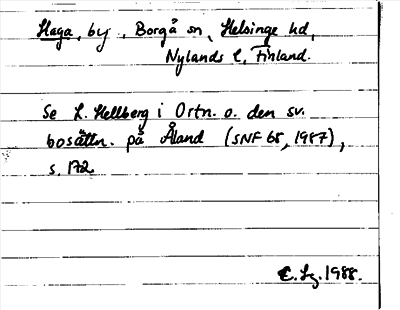 Haga, by, Borgå sn, Helsinge hd,
Nylands l, Finland.
Se L. Hellberg i Ortn. o. den sv.
bosättn. på Åland (SNF 68, 1987),
s. 172.
1988.